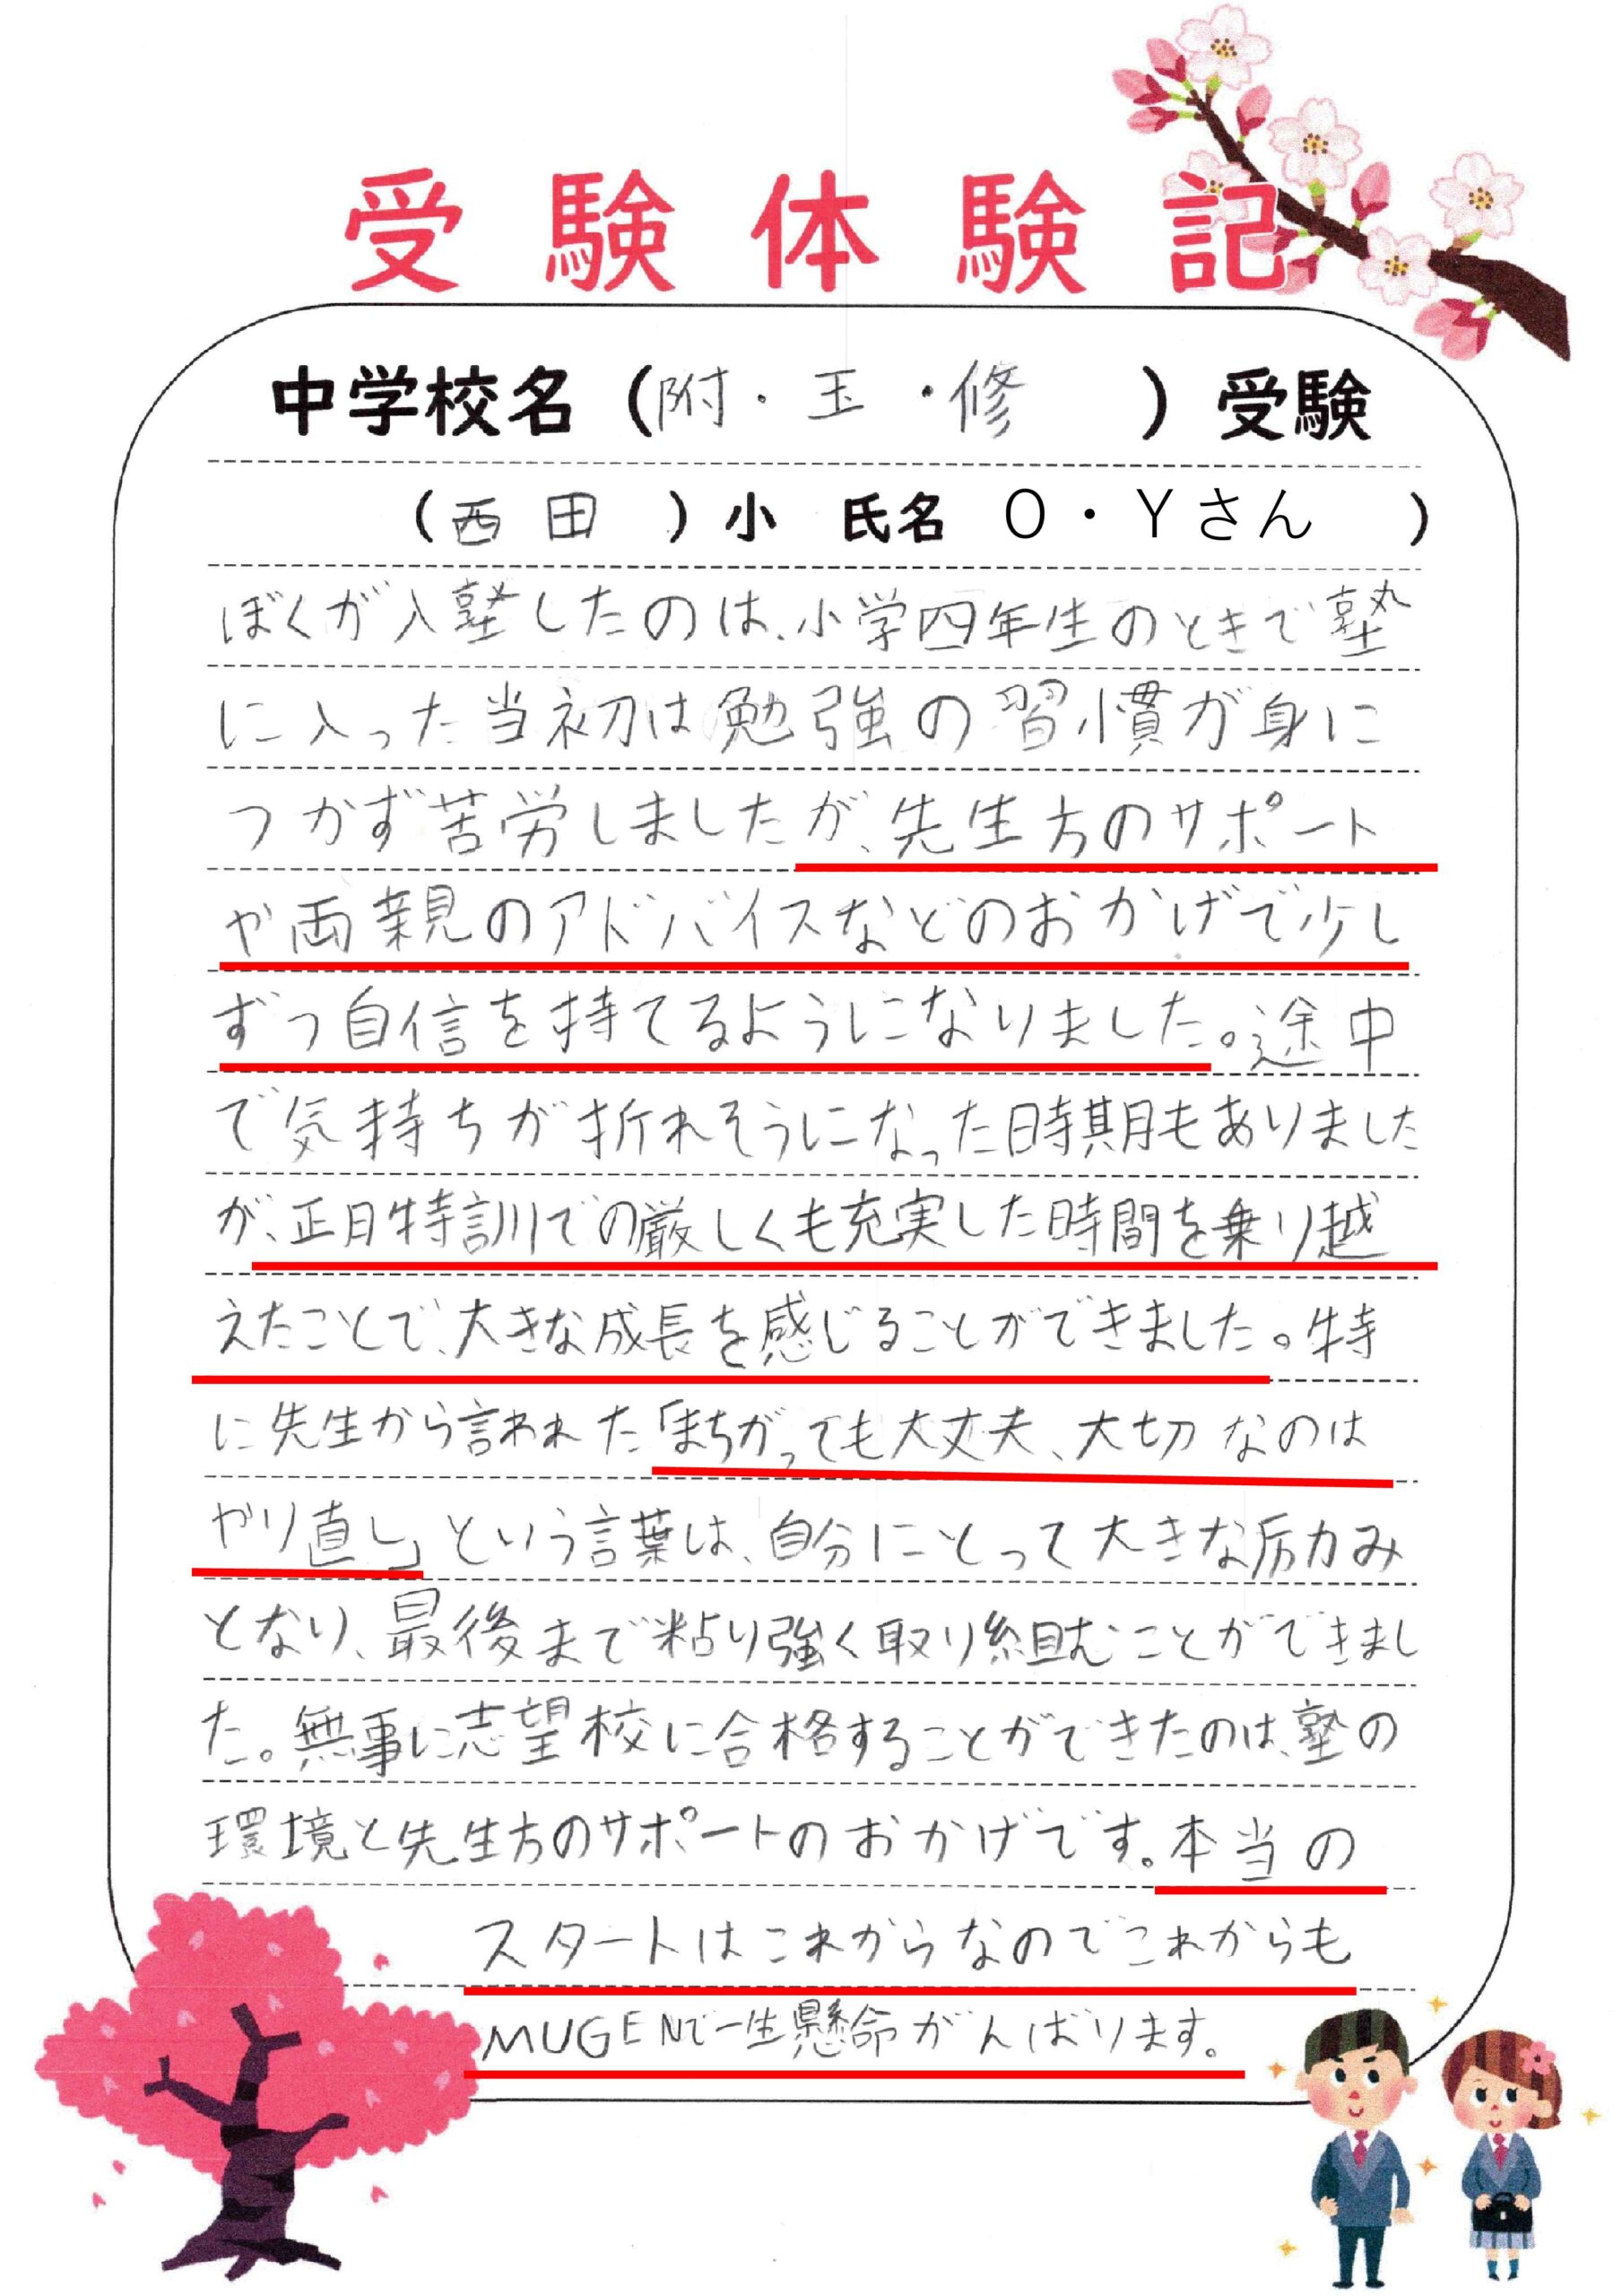 受験体験記
中学校名（附・玉・修　）受験
（西田　）小　氏名　O・Yさん　）
ぼくが入塾したのは、小学四年生のときで塾
に入った当初は勉強の習慣が身に
つかず苦労しましたが、先生方のサポート
や両親のアドバイスなどのおかげで少し
ずつ自信を持てるようになりました。途中
で気持ちが折れそうになった時期もありました
が、正月特訓での厳しくも充実した時間を乗り越
えたことで、大きな成長を感じることができました。特
に先生から言われた「まちがっても大丈夫、大切なのは
やり直し」という言葉は、自分にとって大きな励み
となり、最後まで粘り強く取り組むことができまし
た。無事に志望校に合格することができたのは、塾の
環境と先生方のサポートのおかげです。本当の
スタートはこれからなのでこれからも
MUGENで一生懸命がんばります。